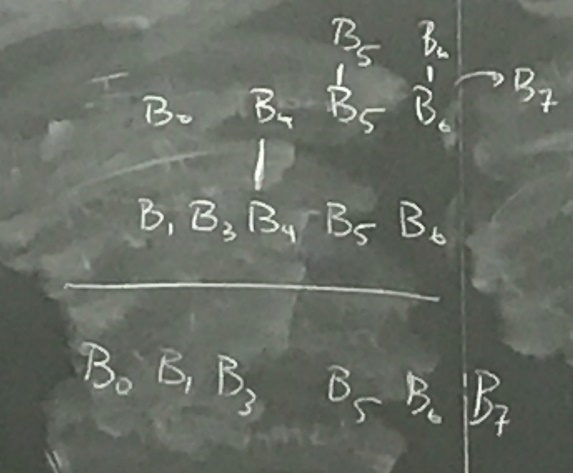 B₅ B₆
B₀ B₄ B₅ B₆ → B₇
B₁ B₃ B₄ B₅ B₆
B₀ B₁ B₃ B₅ B₆ B₇